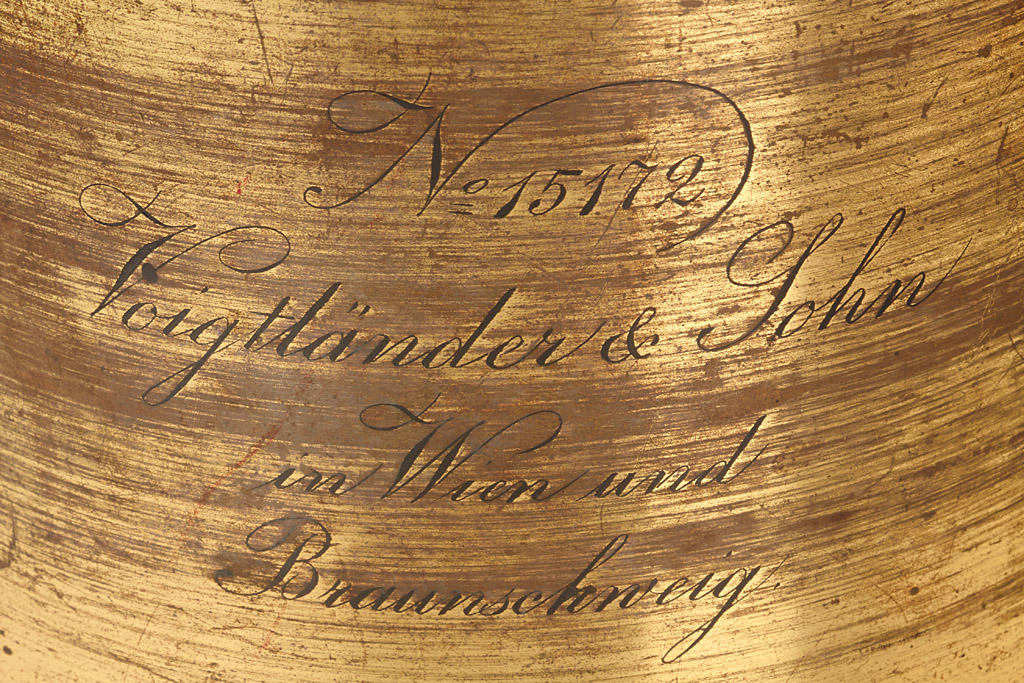 No 15172
Voigtländer & Sohn
in Wien und
Braunschweig.